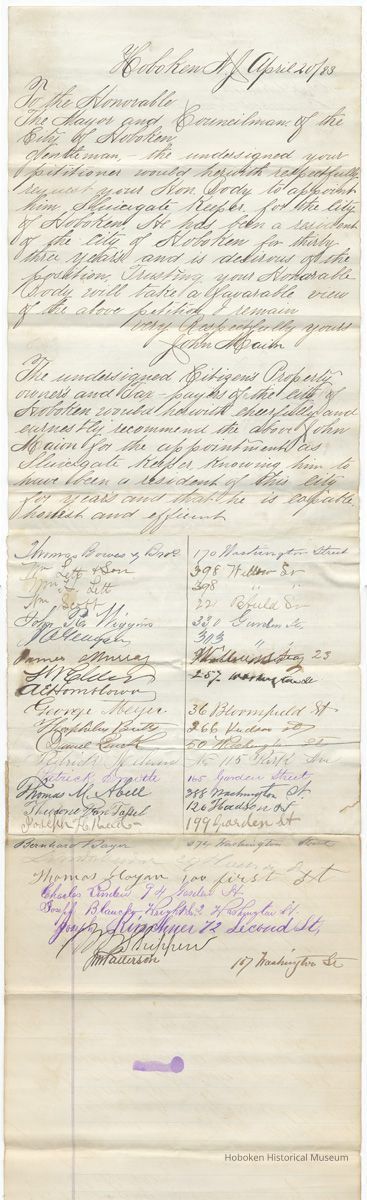 Hoboken N J April 20/83
To the Honorable
The Mayor and Councilman of the
City of Hoboken
Gentleman, - the undersigned your
petitioner would herwith respectfully
request your Hon. Body to appoint
him Sluicegate Keeper for the city
of Hoboken. He has been a resident
of the city of Hoboken for thirty
three years and is desirous of the
position, Trusting your Honorable
Body will take a favorable view
of the above petition I remain
very Respectfully yours
John Maion
The undersigned Citizens Property
owners and Tax-payers of the city of
Hoboken would herwith cheerfully and
earnestly recommend the above John
Maion for the appointment as
Sluicegate Keeper knowing him to
have been a resident of this city
for years and that he is capable
honest and efficient
Thomas Bowes & Bros 170 Washington Street
Wm Lett & Son 398 Willow St
Wm J. Lett 398 " "
Wm Scott 221
John R. Wiggins 330 Garden St
303 " "
James Murray 23
257 Washington St
George Meyer 36 Bloomfield St
266 Hudson St
Daniel 50 Washington St
Patrick 115 Park Ave
Patrick 165 Garden Street
Thomas M. Abell 288 Washington St
Theodore Van Tassel 126 Hudson St
199 Garden St
Bernhard Bayer Washington Street
Thomas Hogan 100 first St
Charles 74 Garden St
Joseph Washington St.
Joseph Kirchner 72 Second St,
Wm Patterson 157 Washington St
Hoboken Historical Museum